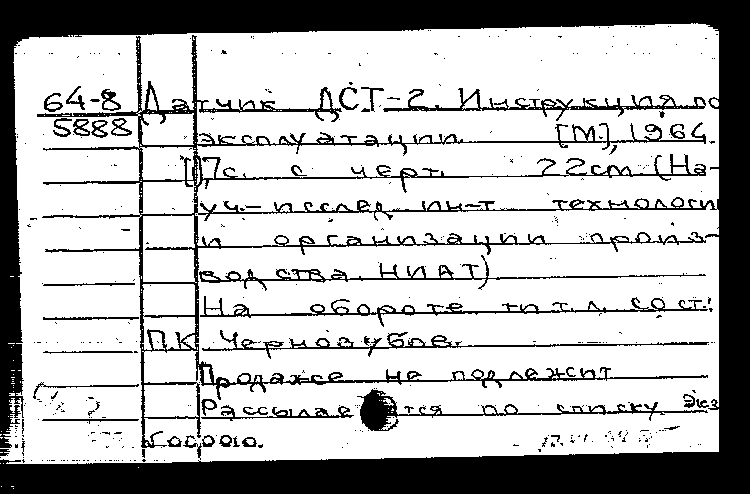 64-8 Датчик ДСТ-2. Инструкция по
5888 эксплуатации. [М.], 1964.
[1], 7с. с черт. 22см. (На-
уч.-исслед. ин-т технологии
и организации произ-
водства. НИАТ)
На обороте тит. л. сост.:
П.К. Чернозубов.
Продаже не подлежит
Рассылается по списку Экз.
б.000010.